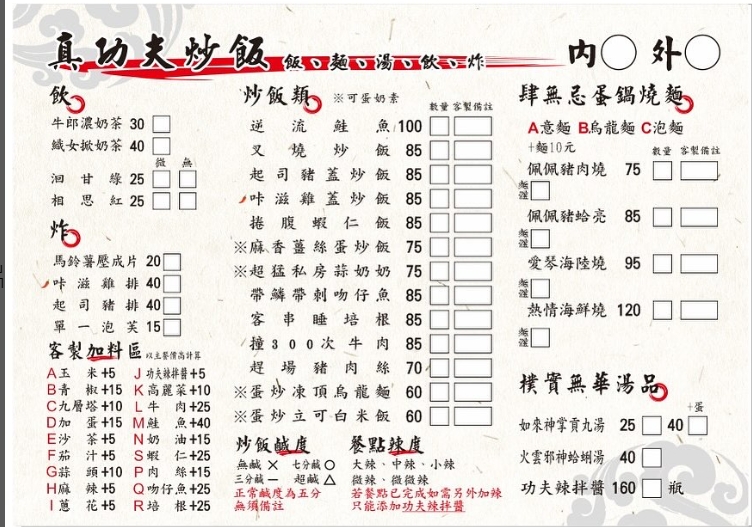 真功夫炒飯 飯、麵、湯、飲、炸 內 外
飲
牛郎濃奶茶 30
織女掀奶茶 40
微 無
洄甘綠 25
相思紅 25
炸
馬鈴薯壓成片 20
咔滋雞排 40
起司豬排 40
單一泡芙 15
客製加料區 以主餐備為計算
A玉米+5
B青椒+15
C九層塔+10
D加蛋+15
E沙茶+5
F茄汁+5
G蒜頭+10
H麻辣+5
I蔥花+5
J功夫辣拌醬+5
K高麗菜+10
L牛肉+25
M鮭魚+40
N奶油+15
S蝦仁+25
P肉絲+15
Q吻仔魚+25
R培根+25
炒飯類 ※可蛋奶素
數量 客製備註
逆流鮭魚 100
叉燒炒飯 85
起司豬蓋炒飯 85
咔滋雞蓋炒飯 85
捲腹蝦仁飯 85
※麻香薑絲蛋炒飯 75
※超猛私房蒜奶奶 75
帶鱗帶刺吻仔魚 85
客串睡培根 85
撞300次牛肉 85
趕場豬肉絲 70
※蛋炒凍頂烏龍麵 60
※蛋炒立可白米飯 60
炒飯鹹度
無鹹 × 七分鹹 ○
三分鹹 — 超鹹 △
正常鹹度為五分
無須備註
餐點辣度
大辣、中辣、小辣
微辣、微微辣
若餐點已完成如需另外加辣
只能添加功夫辣拌醬
肆無忌蛋鍋燒麵
A意麵 B烏龍麵 C泡麵
+麵10元
數量 客製備註
佩佩豬肉燒 75
麵選
佩佩豬蛤亮 85
麵選
愛琴海陸燒 95
麵選
熱情海鮮燒 120
麵選
樸實無華湯品
+蛋
如來神掌貢九湯 25 40
火雲邪神蛤蜊湯 40
功夫辣拌醬 160 瓶